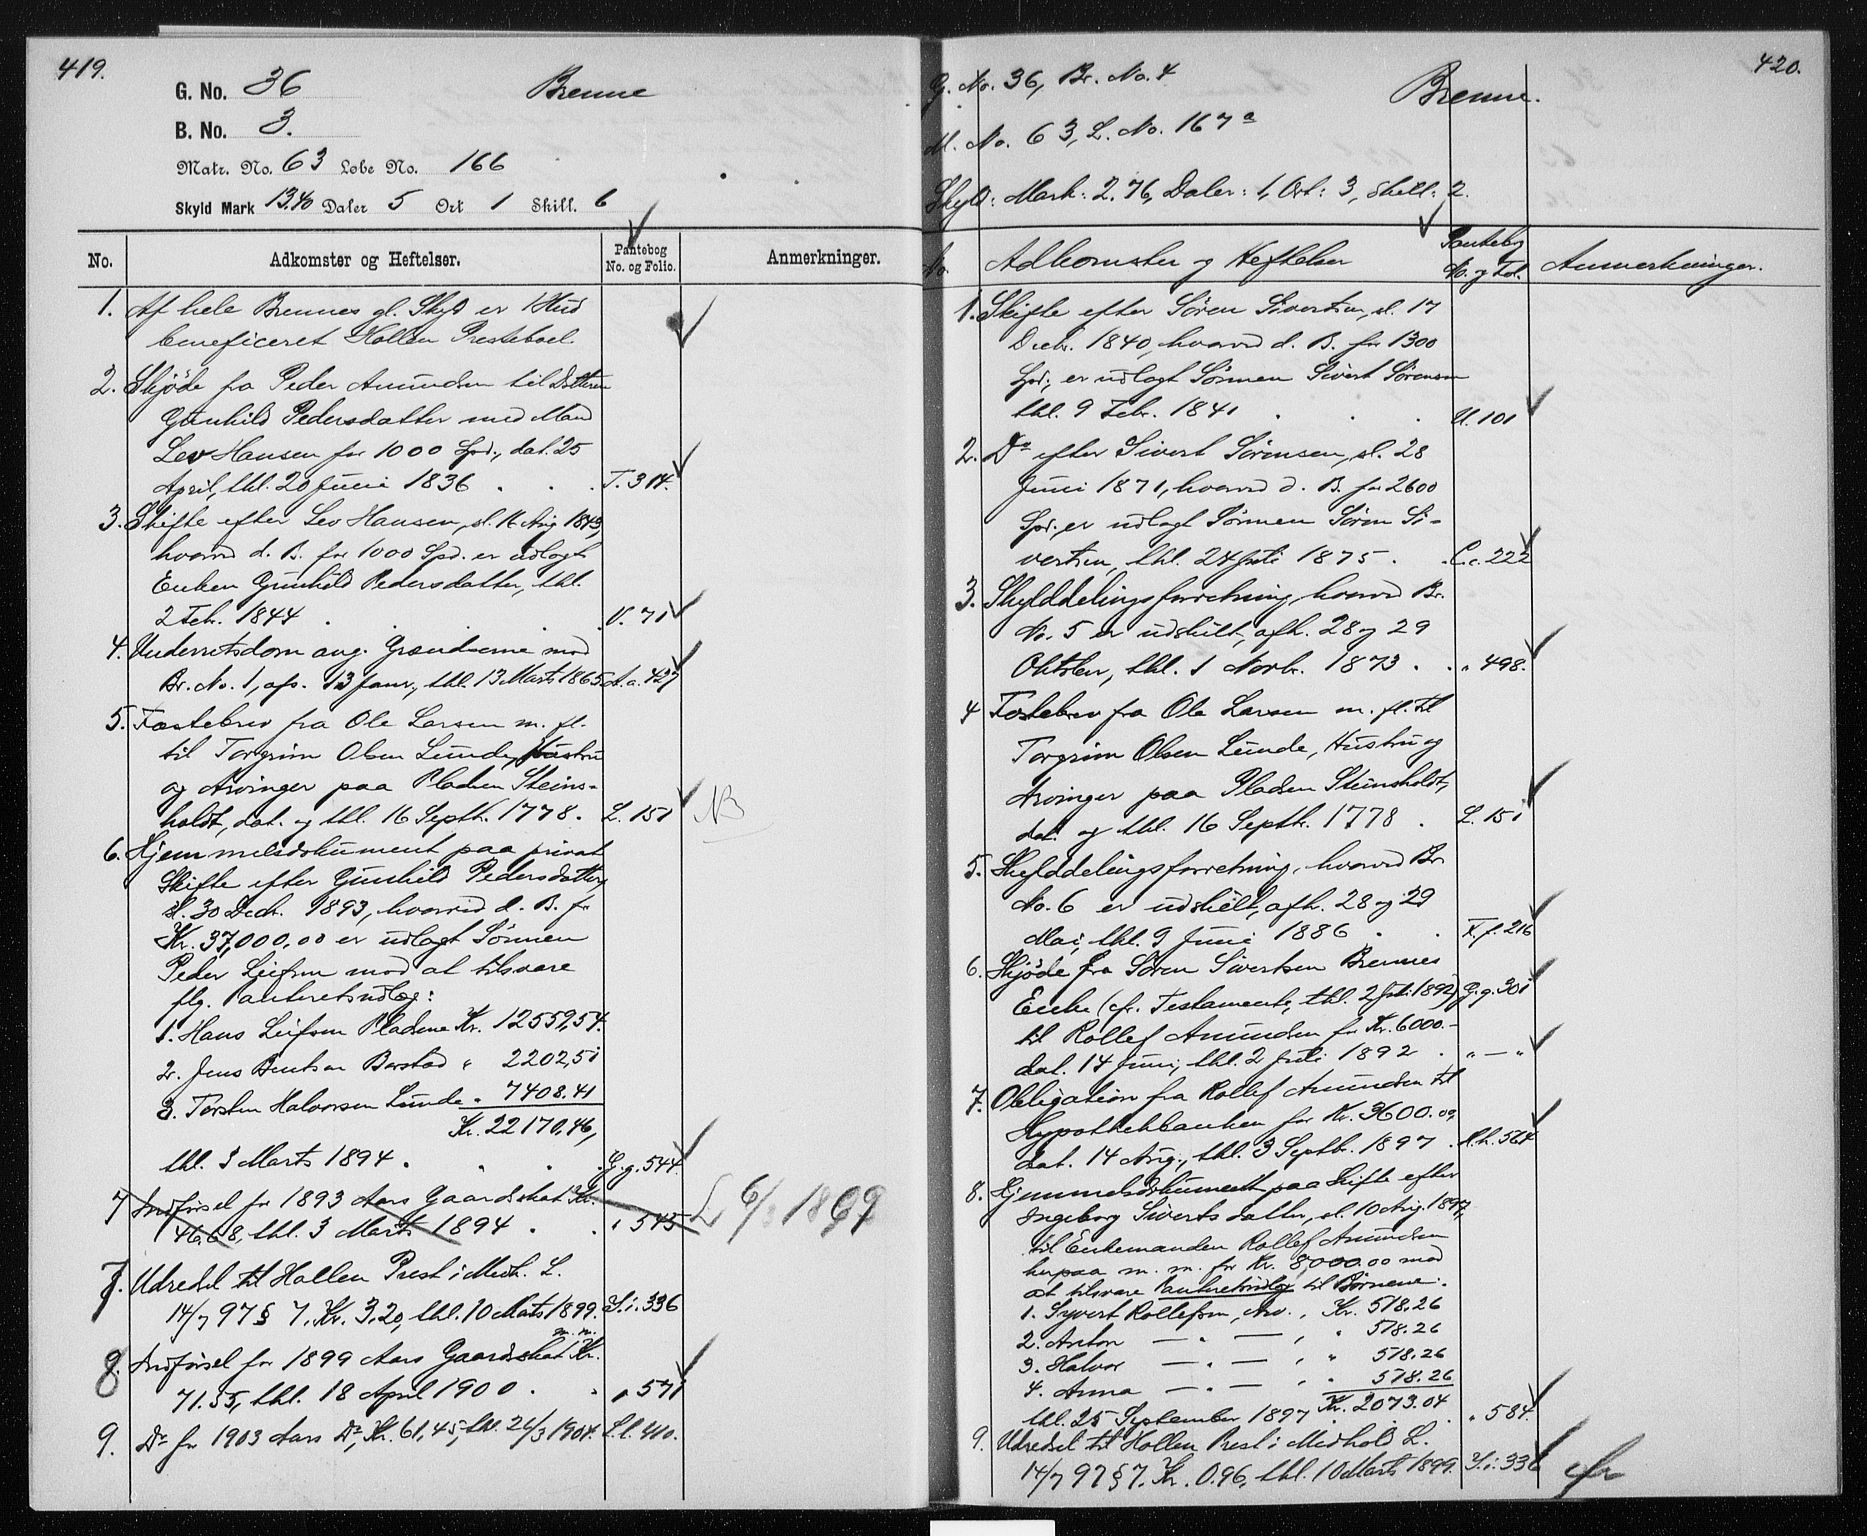 419.
G. No. 36 Brenne
B. No. 3.
Matr. No. 63 Løbe No. 166
Skyld Mark 13.40 Daler 5 Ort 1 Skill. 6
No. Adkomster og Heftelser. Pantebog No. og Folio. Anmerkninger.
1. Af hele Brennes gl. Skyld er 1 Hud
beneficeret Hollen Presteboel.
2. Skjøde fra Peder Amundsen til Datteren
Gunhild Pedersdatter med Mand
Lev Hansen for 1000 Spd., dat. 25
April, thl. 20 Juni 1836 . . T. 314.
3. Skifte efter Lev Hansen, sl. 16 Aug 1843,
hvorved d. B. for 1000 Spd. er udlagt
Enken Gunhild Pedersdatter, thl.
2 Feb. 1844 . . . V. 71
4. Underretsdom ang. Grændserne mod
Br. No. 1, afs. 13 Janr., thl. 13 Marts 1865. A.a. 427
5. Fæstebrev fra Ole Larsen m. fl.
til Torgrim Olsen Lunde, Hustru
og Arvinger paa Pladsen Steins-
holdt, dat. og thl. 16 Septb. 1778. L. 151 NB
6. Hjemmelsdokument paa privat
Skifte efter Gunhild Pedersdatter,
sl. 30 Decb. 1893, hvorved d. B. for
Kr. 37,000.00 er udlagt Sønnen
Peder Leifsen mod at tilsvare
flg. Panteretsudlæg:
1. Hans Leifsen Pladsene Kr. 12559,54.
2. Jens Bentsen Borstad " 2202,51
3. Torsten Halvorsen Lunde " 7408.41
Kr. 22170,46,
thl. 3 Marts 1894 . . . G.g. 544.
7 Indførsel for 1893 Aars Gaardskat Kr.
46.68, thl. 3 Marts 1894 . . " 545 L 6/3 1899
7. Udredsel til Hollen Prest i Medh. L.
14/7 97 § 7, Kr. 3,20, thl. 10 Marts 1899. I.i. 336
m. m.
8. Indførsel for 1899 Aars Gaardsskat Kr.
71.55, thl. 18 April 1900 . . " 571
9. Do for 1903 Aars Do, Kr. 61,45, thl. 26/3 1904. L.l. 410.
420.
G. No. 36, Br. No. 4 Brenne.
M. No. 63, L. No. 167 a
Skyld: Mark: 2.76, Daler: 1, Ort: 3, Skill: 2.
No. Adkomster og Heftelser Pantebog No. og Fol. Anmerkninger.
1. Skifte efter Søren Sivertsen, sl. 17
Decb. 1840, hvorved d. B. for 1300
Spd., er udlagt Sønnen Sivert Sørensen
thl. 9 Feb. 1841 . . . U. 101
2. Do efter Sivert Sørensen, sl. 28
Juni 1871, hvorved d. B. for 2600
Spd. er udlagt Sønnen Søren Si-
vertsen, thl. 24 Juli 1875 . . C.c. 222
3. Skylddelingsforretning, hvorved Br.
No. 5 er udskilt, afh. 28 og 29
Oktober, thl. 1 Novb. 1873 . . " 498.
4 Fæstebrev fra Ole Larsen m. fl. til
Torgrim Olsen Lunde, Hustru og
Arvinger paa Pladsen Steinsholdt,
dat. og thl. 16 Septb. 1778 . L. 151
5. Skylddelingsforretning, hvorved Br
No. 6 er udskilt, afh. 28 og 29
Mai, thl. 9 Juni 1886 . . F.f. 216
6. Skjøde fra Søren Sivertsen Brennes
Enke (cfr. Testamente, thl. 2 Juli 1892) G.g. 301
til Rollef Amundsen for Kr. 6000.-
dat. 14 Juni, thl. 2 Juli 1892 . " — "
7. Obligation fra Rollef Amundsen til
Hypothekbanken for Kr. 3600.00,
dat. 14 Aug., thl. 3 Septb. 1897 . H.h. 564
8. Hjemmelsdokument paa Skifte efter
Ingeborg Sivertsdatter, sl. 10 Aug. 1897,
til Enkemanden Rollef Amundsen
herpaa m. m. for Kr. 8,000.00 mod
at tilsvare Panteretsudlæg til Børnene:
1. Syvert Rollefsen, Arv., Kr. 518.26
2. Anton — " — , " 518.26
3. Halvor — " — , " 518.26
4. Anna — " — , " 518.26
thl. 25 September 1897 Kr. 2073.04 . " 584.
9. Udredsel til Hollen Prest i Medhold L.
14/7 97 § 7, Kr. 0.96, thl. 10 Marts 1899. I.i. 336 cfr